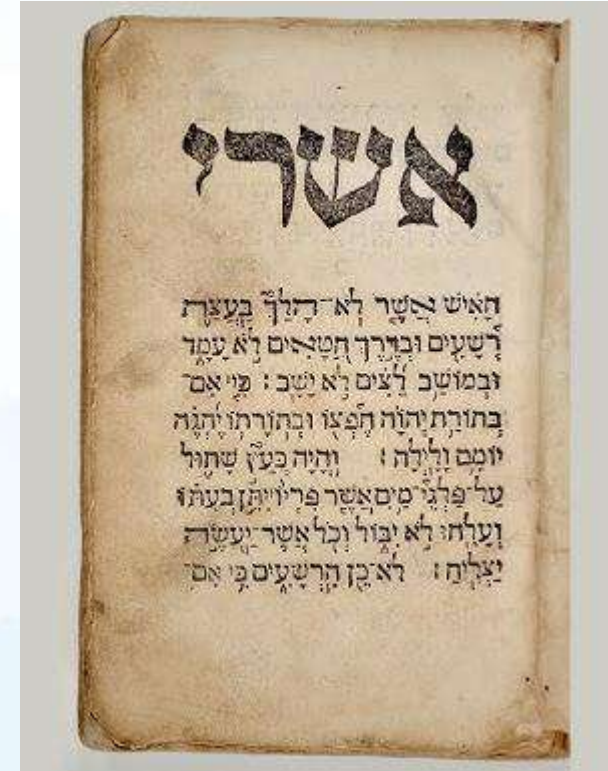 אשרי
הָאִישׁ אֲשֶׁר לֹא־הָלַךְ בַּעֲצַת
רְשָׁעִים וּבְדֶרֶךְ חַטָּאִים לֹא עָמָד
וּבְמוֹשַׁב לֵצִים לֹא יָשָׁב׃ כִּי אִם־
בְּתוֹרַת יְהוָה חֶפְצוֹ וּבְתוֹרָתוֹ יֶהְגֶּה
יוֹמָם וָלָיְלָה׃ וְהָיָה כְּעֵץ שָׁתוּל
עַל־פַּלְגֵי־מָיִם אֲשֶׁר פִּרְיוֹ יִתֵּן בְּעִתּוֹ
וְעָלֵהוּ לֹא יִבּוֹל וְכֹל אֲשֶׁר־יַעֲשֶׂה
יַצְלִיחַ׃ לֹא־כֵן הָרְשָׁעִים כִּי אִם־